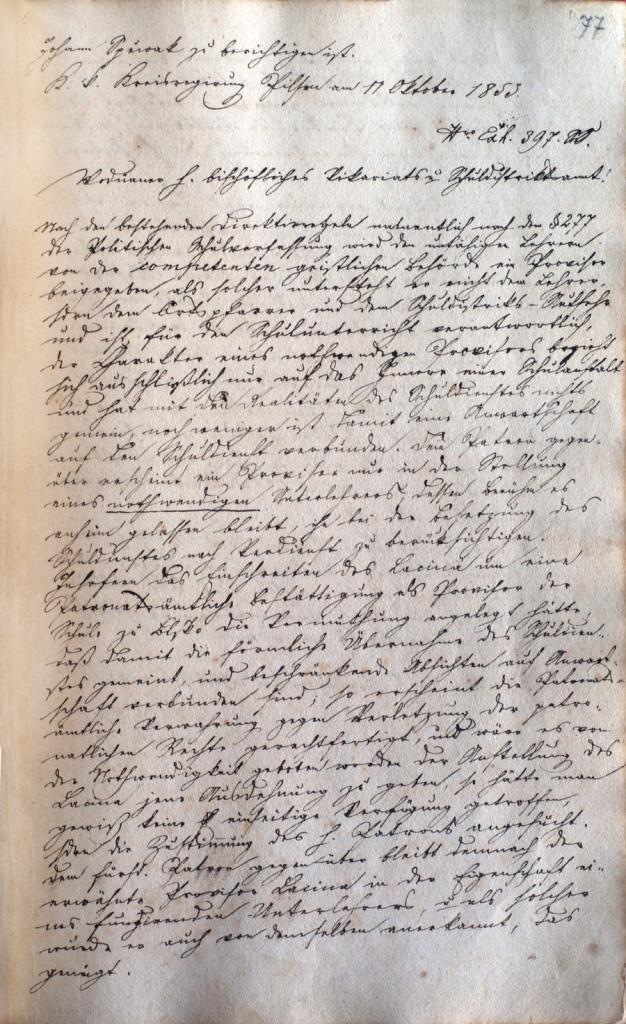 77
Johann Spiwak zu berichtigen ist.
K. k. Kreisregierung Pilsen am 11 Oktober 1853.
Nro Exh. 397.
Woduaner h. bischöfliches Vikariats u Schuldistriktsamt!
Nach den bestehenden Direktivregeln namentlich nach dem § 277
der Politischen Schulverfassung wird den unfähigen Lehrern
von der competenten geistlichen Behörde ein Provisor
beigegeben, als solcher untersteht er nicht dem Lehrer,
sdern dem Ortspfarrer und dem Schuldistrikts-Aufseher
und ist für den Schulunterricht verantwortlich,
der Charakter eines nothwendigen Provisors bezieht
sich ausschlißlich nur auf das Innere einer Schulanstalt
und hat mit den Realitäten des Schuldienstes nichts
gemein, noch weniger ist damit eine Anwartschaft
auf den Schuldienst verbunden. Dem Patron gegen-
über erscheint ein Provisor nur in der Stellung
eines nothwendigen Unterlehrers, dessen Berühn es
anheim gelassen bleibt, ihn bei der Besetzung des
Schuldienstes nach Verdienst zu berücksichtigen.
Insofern das Einschreiten des Lacina um eine
Patronatsämtliche Bestättigung als Provisor der
Schule zu Elsko die Vermuthung angeregt hätte,
daß damit die förmliche Übernahme des Schuldien-
stes gemeint, und beschränkende Absichten auf Anwart-
schaft verbunden sind; so erscheint die Patronats-
ämtliche Verwahrung gegen Verletzung der patro-
natlichen Rechte gerechtfertigt, und wäre es von
der Nothwendigkeit geboten worden der Anstellung des
Lacina jene Ausdehnung zu geben, so hätte man
gewiß keine einseitige Verfügung getroffen,
sdern die Zustimung des h. Patrons angesucht.
Dem fürstl. Patron gegenüber bleibt demnach der
erwähnte Provisor Lacina in der Eigenschaft ei-
nes fungirenden Unterlehrers, u als solcher
wurde er auch von demselben anerkannt, das
genügt.